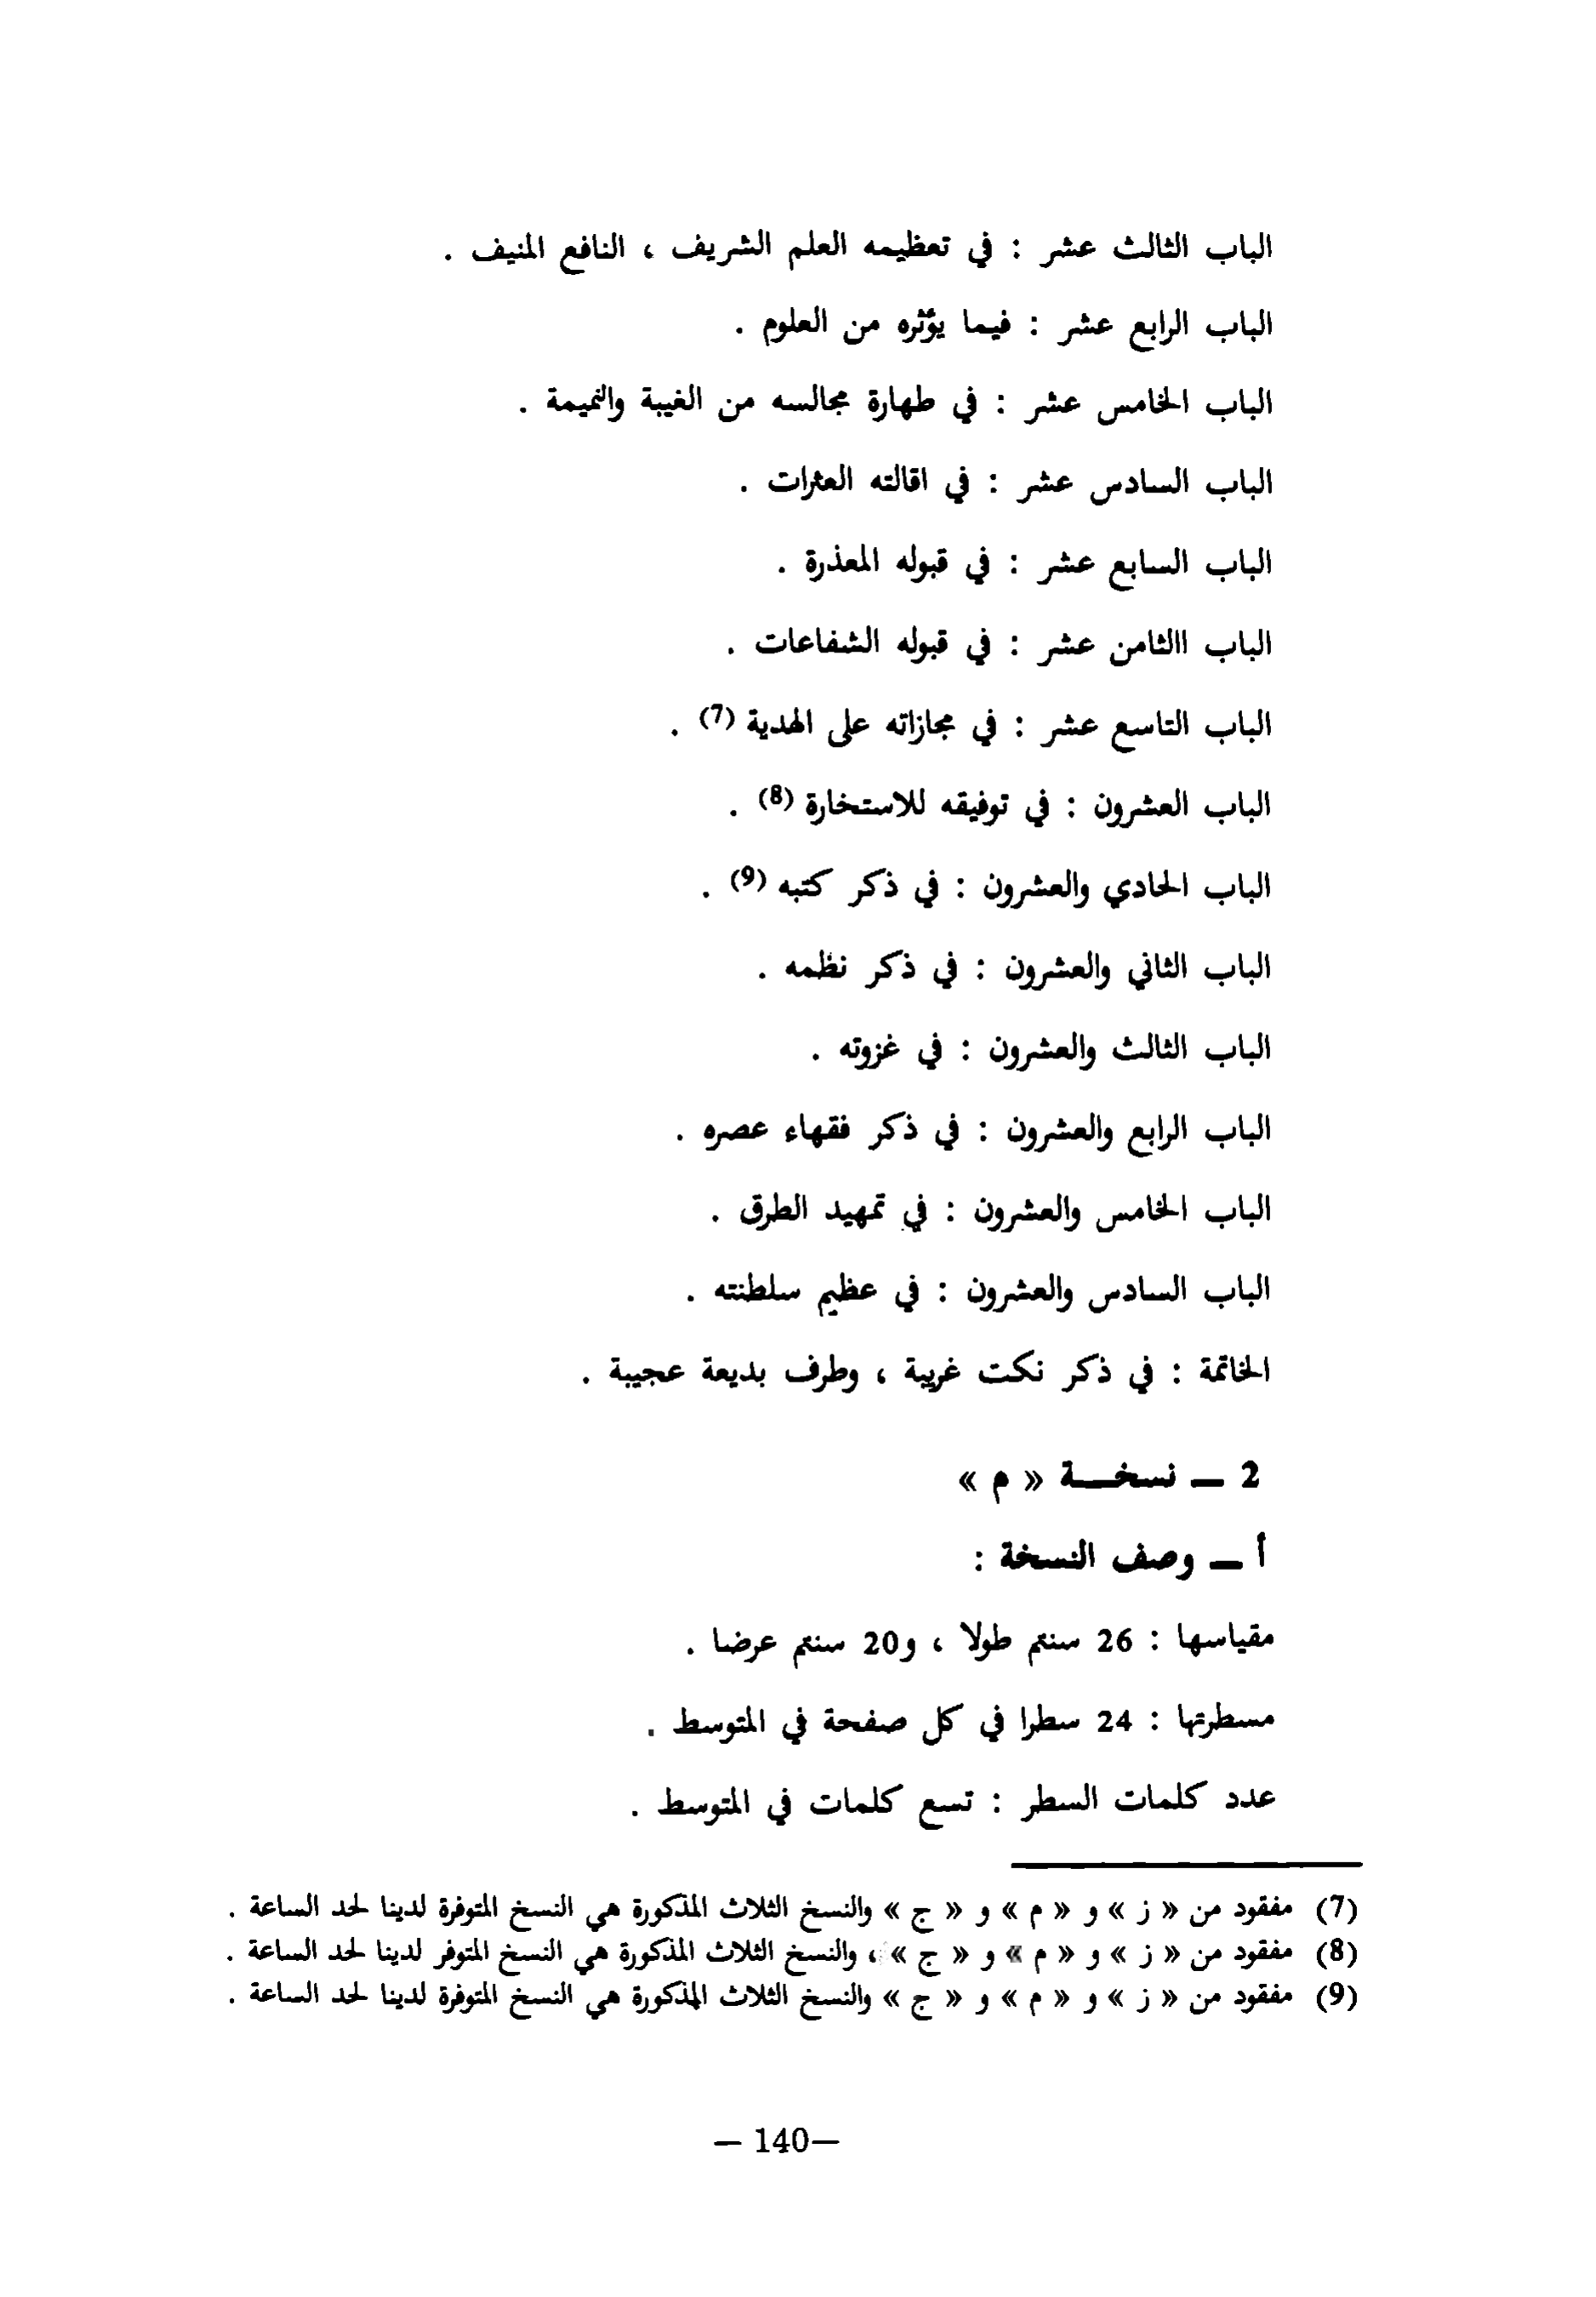 الباب الثالث عشر : في تعظيمه العلم الشريف ، النافع المنيف .
الباب الرابع عشر : فيما يؤثره من العلوم .
الباب الخامس عشر : في طهارة مجالسه من الغيبة والنميمة .
الباب السادس عشر : في اقالته العثرات .
الباب السابع عشر : في قبوله المعذرة .
الباب االثامن عشر : في قبوله الشفاعات .
الباب التاسع عشر : في مجازاته على الهدية (7) .
الباب العشرون : في توفيقه للاستخارة (8) .
الباب الحادي والعشرون : في ذكر كتبه (9) .
الباب الثاني والعشرون : في ذكر نظمه .
الباب الثالث والعشرون : في غزوته .
الباب الرابع والعشرون : في ذكر فقهاء عصره .
الباب الخامس والعشرون : في تمهيد الطرق .
الباب السادس والعشرون : في عظيم سلطنته .
الخاتمة : في ذكر نكت غريبة ، وطرف بديعة عجيبة .
2 ــ نسخــة « م »
أ ــ وصف النسخة :
مقياسها : 26 سنتم طولا ، و20 سنتم عرضا .
مسطرتها : 24 سطرا في كل صفحة في المتوسط .
عدد كلمات السطر : تسع كلمات في المتوسط .
(7) مفقود من « ز » و « م » و « ج » والنسخ الثلاث المذكورة هي النسخ المتوفرة لدينا لحد الساعة .
(8) مفقود من « ز » و « م » و « ج » ، والنسخ الثلاث المذكورة هي النسخ المتوفر لدينا لحد الساعة .
(9) مفقود من « ز » و « م » و « ج » والنسخ الثلاث المذكورة هي النسخ المتوفرة لدينا لحد الساعة .
— 140—